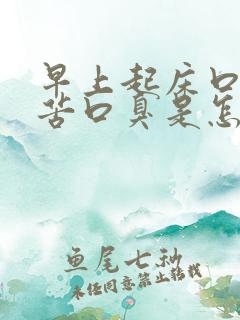 早上起床口
苦口臭是怎
鱼尾七秒
未经同意禁止转载